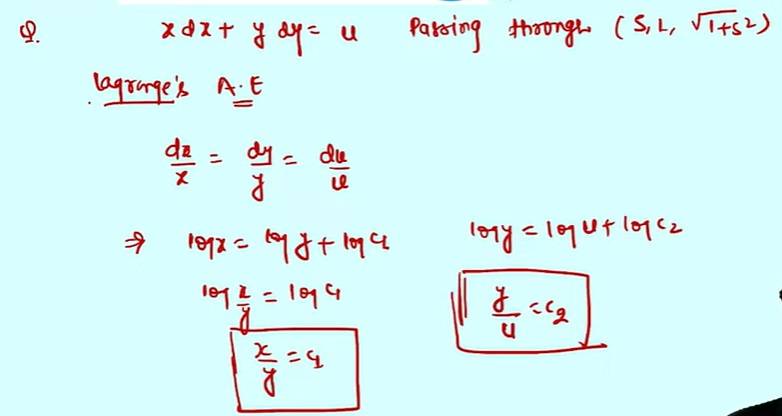 Q. x dx + y dy = u Passing through (S, 1, √1+S²)
Lagrange's A.E
dx/x = dy/y = du/u
⇒ log x = log y + log c1 log y = log u + log c2
log x/y = log c1 y/u = c2
x/y = c1